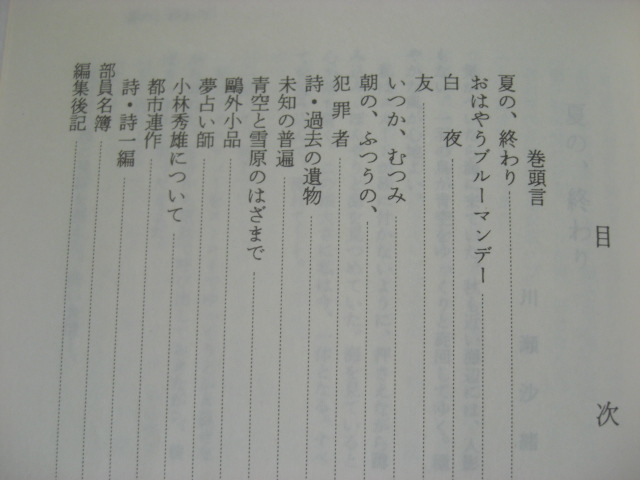 目次
巻頭言
夏の、終わり
おはやうブルーマンデー
白夜
友
いつか、むつみ
朝の、ふつうの、
犯罪者
詩・過去の遺物
未知の普遍
青空と雪原のはざまで
鷗外小品
夢占い師
小林秀雄について
都市連作
詩・詩一編
部員名簿
編集後記